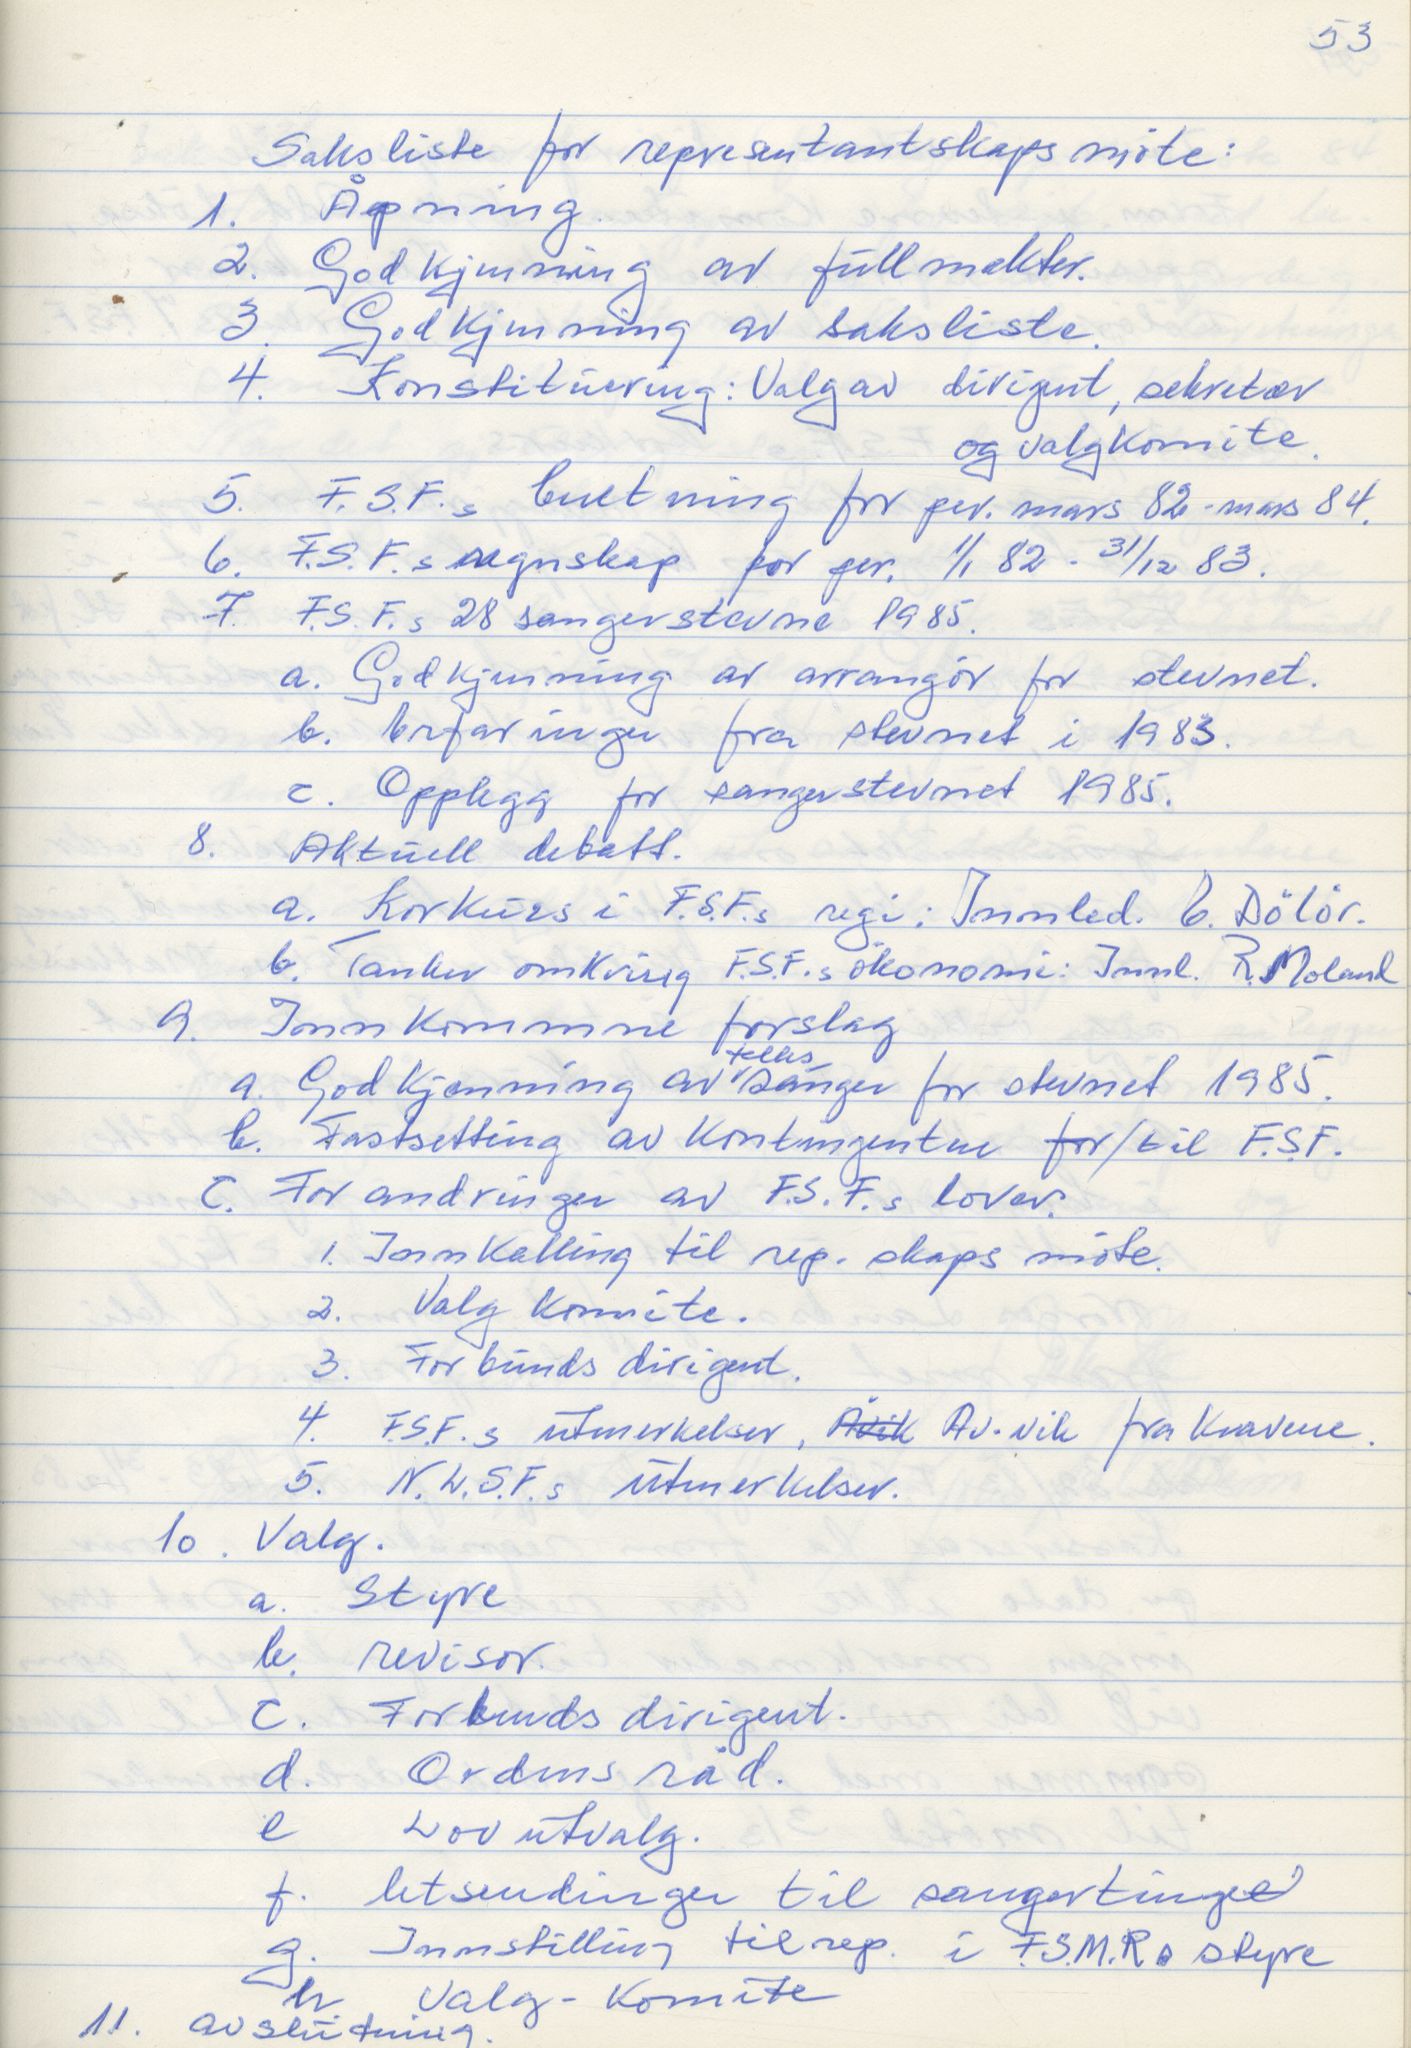 53
Saksliste for representantskapsmöte:
1. Åpning.
2. Godkjenning av fullmakter.
3. Godkjenning av saksliste.
4. Konstituering: Valg av dirigent, sekretær
og valgkomite.
5. F.S.F.s beretning for per. mars 82 - mars 84.
6. F.S.F.s regnskap for per. 1/1 82 - 31/12 83.
7. F.S.F.s 28 sangerstevne 1985.
a. Godkjenning av arrangör for stevnet.
b. Erfaringer fra stevnet i 1983.
c. Opplegg for sangerstevnet 1985.
8. Aktuell debatt.
a. Korkurs i F.S.F.s regi: Innled. E. Dölör.
b. Tanker omkring F.S.F.s ökonomi: Innl. R. Moland
9. Innkommne forslag
a. Godkjenning av felles sanger for stevnet 1985.
b. Fastsetting av kontingenten for/til F.S.F.
c. Forandringer av F.S.F.s lover.
1. Innkalling til rep.skapsmöte.
2. Valg komite.
3. Forbundsdirigent.
4. F.S.F.s utmerkelser, Avik Av-vik fra kravene.
5. N.L.S.F.s utmerkelser.
10. Valg.
a. Styre
b. revisor.
c. Forbunds dirigent.
d. Ordensråd.
e Lovutvalg.
f. Utsendinger til sangertinget
g. Innstilling til rep. i F.S.M.R.s styre
h Valg-komite
11. avslutning.